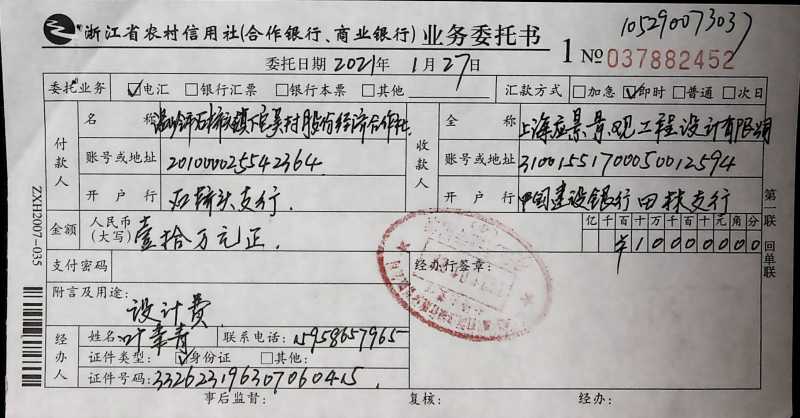 10529007303
浙江省农村信用社(合作银行、商业银行) 业务委托书
1 № 037882452
委托日期 2021年 1月 27日
委托业务 ☑电汇 □银行汇票 □银行本票 □其他 汇款方式 □加急 ☑即时 □普通 □次日
付款人 名称 村股份经济合作社
收款人 全称 上海应景景观工程设计有限公司
账号或地址 201000025542364
账号或地址 31001551700050012594
开户行 石桥头支行
开户行 中国建设银行田林支行
金额 人民币(大写) 壹拾万元正
亿千百十万千百十元角分
¥10000000
支付密码
经办行签章:
附言及用途:
设计费
经办人 姓名: 叶幸青 联系电话: 15958657965
证件类型: ☑身份证 □其他:
证件号码: 332623196307060415
事后监督: 复核: 经办:
第一联 回单联
ZXH2007-035